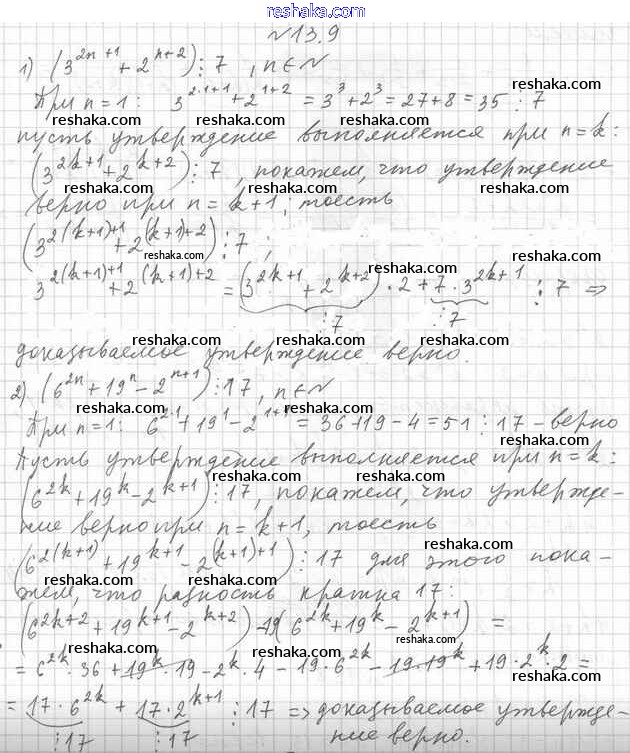 www.reshaka.com
reshaka.com
№13.9
1) (3^{2n+1} + 2^{n+2}) ⋮ 7, n∈N
reshaka.com
При n=1: 3^{2·1+1} + 2^{1+2} = 3^3 + 2^3 = 27 + 8 = 35 ⋮ 7
reshaka.com reshaka.com
пусть утверждение выполняется при n=k:
(3^{2k+1} + 2^{k+2}) ⋮ 7, покажем, что утверждение
reshaka.com reshaka.com
верно при n = k+1, тоесть
(3^{2(k+1)+1} + 2^{(k+1)+2}) ⋮ 7;
reshaka.com reshaka.com
3^{2(k+1)+1} + 2^{(k+1)+2} = (3^{2k+1} + 2^{k+2}) · 2 + 7 · 3^{2k+1} ⋮ 7 ⇒
reshaka.com reshaka.com
⋮7 ⋮7
reshaka.com reshaka.com
доказываемое утверждение верно.
2) (6^{2n} + 19^n - 2^{n+1}) ⋮ 17, n∈N
reshaka.com reshaka.com
При n=1: 6^{2·1} + 19^1 - 2^{1+1} = 36 + 19 - 4 = 51 ⋮ 17 - верно
Пусть утверждение выполняется при n=k:
reshaka.com reshaka.com
(6^{2k} + 19^k - 2^{k+1}) ⋮ 17, покажем, что утвержде-
reshaka.com reshaka.com
ние верно при n = k+1, тоесть
(6^{2(k+1)} + 19^{k+1} - 2^{(k+1)+1}) ⋮ 17 для этого пока-
reshaka.com reshaka.com
жем, что разность кратна 17:
reshaka.com reshaka.com
(6^{2k+2} + 19^{k+1} - 2^{k+2}) - 19(6^{2k} + 19^k - 2^{k+1}) =
reshaka.com reshaka.com
= 6^{2k} · 36 + 19^k · 19 - 2^k · 4 - 19 · 6^{2k} - 19 · 19^k + 19 · 2^k · 2 =
reshaka.com reshaka.com
= 17 · 6^{2k} + 17 · 2^{k+1} ⋮ 17 ⇒ доказываемое утвержде-
reshaka.com reshaka.com
⋮17 ⋮17 ние верно.